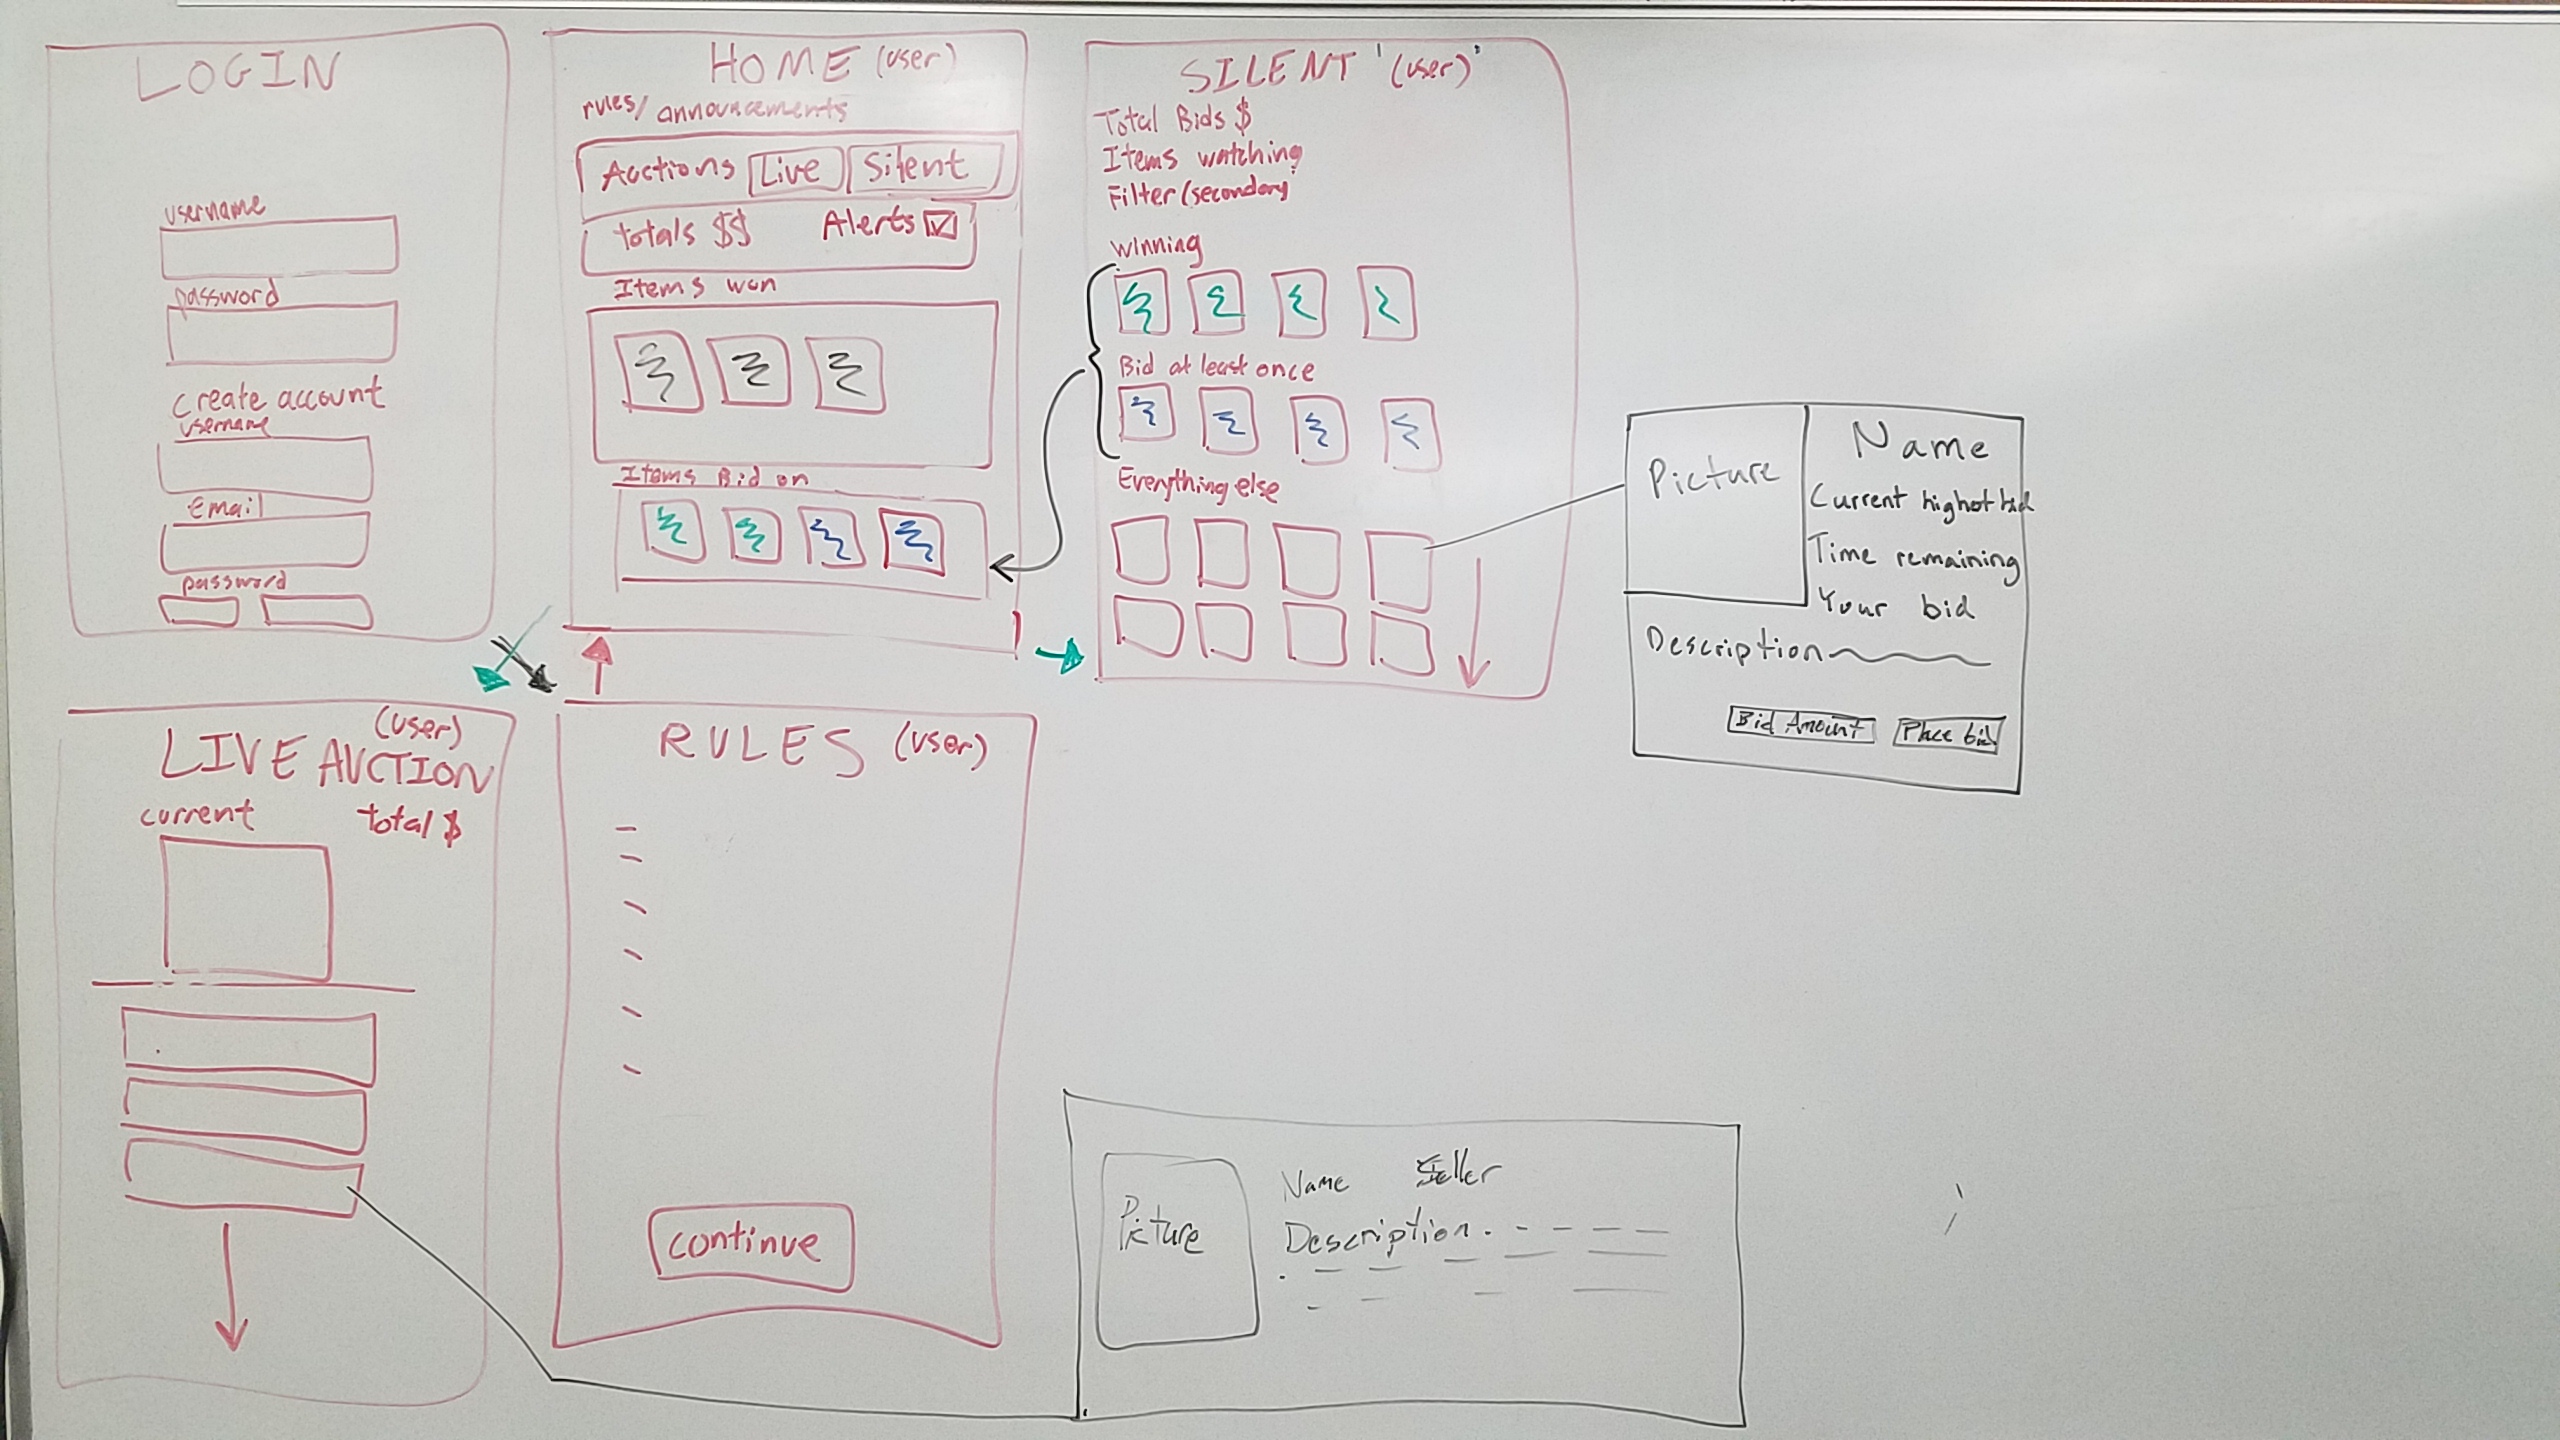 LOGIN
username
password
create account
username
Email
password
HOME (user)
rules/ announcements
Auctions Live Silent
totals $$ Alerts
Items won
Items Bid on
SILENT '(user)'
Total Bids $
Items watching
Filter (secondary)
winning
Bid at least once
Everything else
Picture
Name
Current highest bid
Time remaining
Your bid
Description
Bid Amount Place bid
(user)
LIVE AUCTION
current total $
RULES (user)
continue
Picture
Name Seller
Description